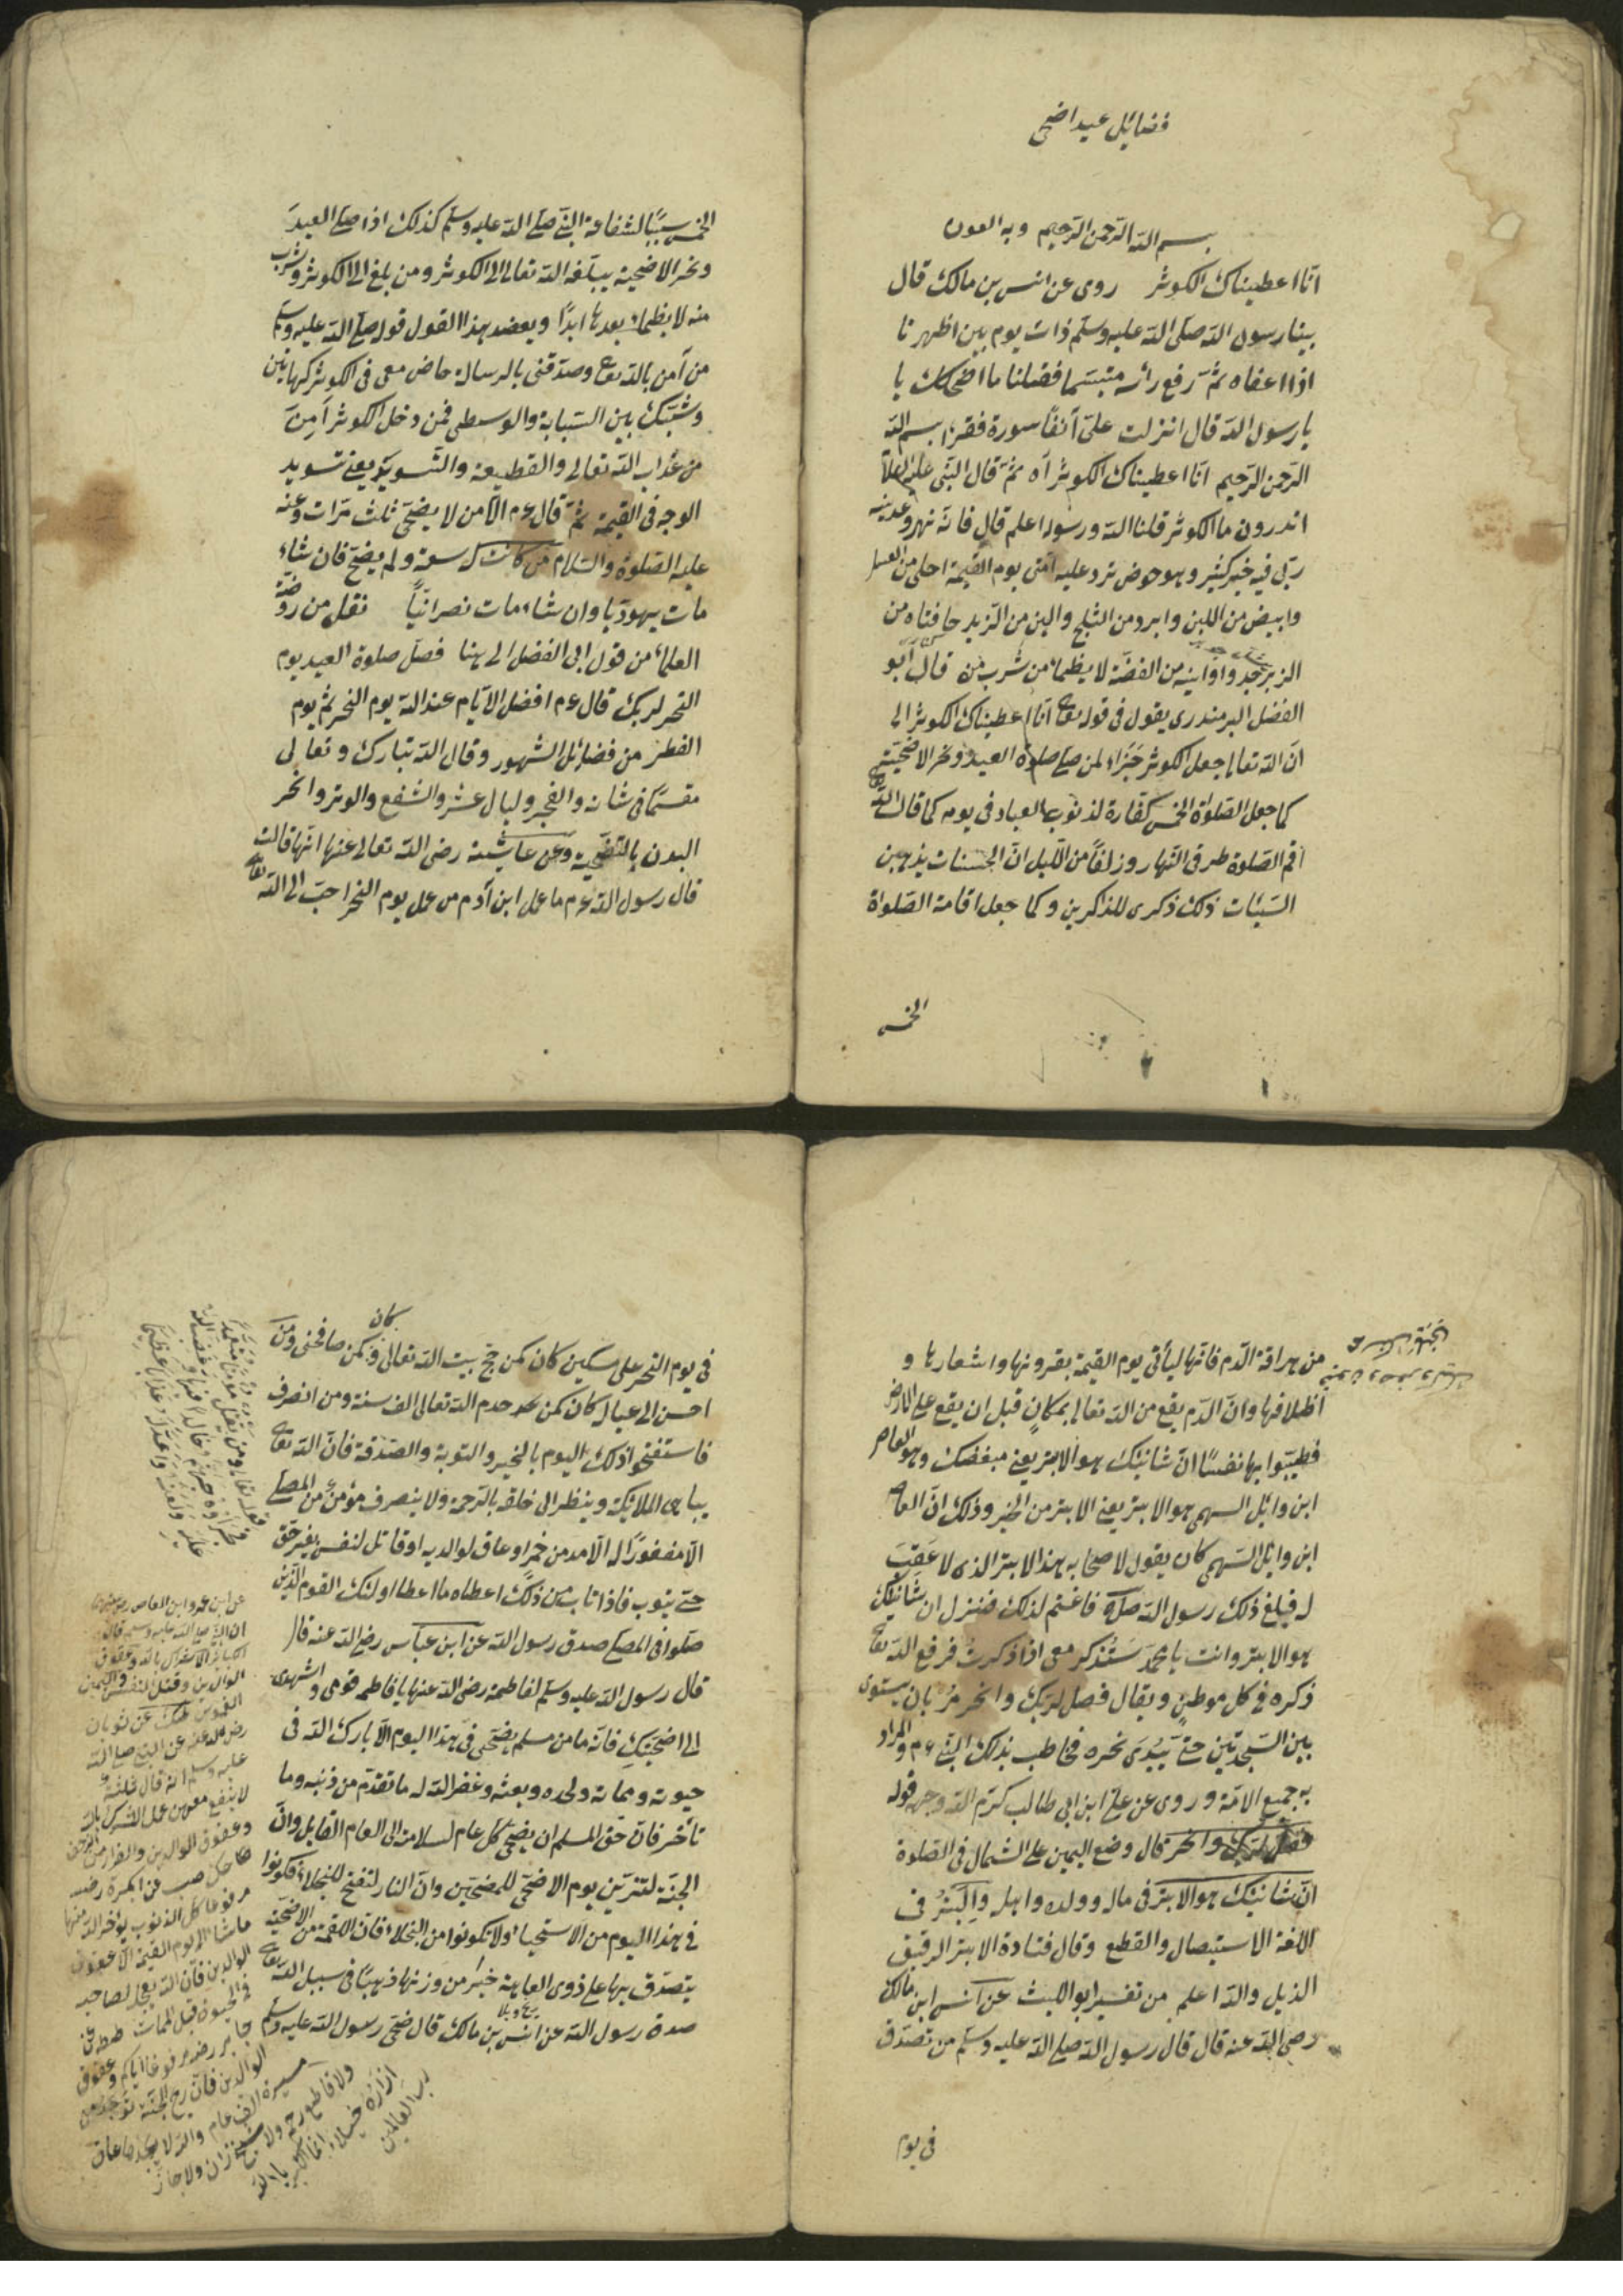 فضائيل عيد اضحى
بسم الله الرحمن الرحيم وبه العون
انا اعطيناك الكوثر روى عن انس بن مالك قال
بينا رسول الله صلى الله عليه وسلم ذات يوم بين اظهرنا
اذا اغفاه ثم رفع رأسه متبسما فقلنا ما اضحكك يا
يا رسول الله قال انزلت علىّ آنفاً سورة فقرا بسم الله
الرحمن الرحيم انا اعطيناك الكوثر آه ثمّ قال النبى عليه السلام
اتدرون ما الكوثر قلنا الله ورسوله اعلم قال فانه نهر وعدنيه
ربى فيه خير كثير وهو حوض ترد عليه امتى يوم القيمة احلى من العسل
وابيض من اللبن وابرد من الثلج والين من الزبد حافتاه من
الزبرجد واوانيه من الفضة لا يظمأ من شرب منه قال ابو
الفضل البرمندرى يقول فى قوله تعالى انا اعطيناك الكوثر اى
ان الله تعالى جعل الكوثر جَزَاء لمن صلى صلوة العيد ونحر الاضحيّة
كما جعل الصلواة الخمس كفّارة لذنوب العباد فى يومه كما قال الله تعالى
اقم الصلوة طرفى النهار وزلفاً من الليل انّ الحسنات يذهبن
السيّئات ذلك ذكرى للذاكرين وكما جعل اقامة الصلواة
الخمس
الخمس سببًا لشفاعة النبى صلى الله عليه وسلم كذلك اذا صلى العيدَ
ونحر الاضحية يبلّغه الله تعالى الى الكوثر ومن بلغ الى الكوثر وشرب
منه لا يظماء بعدها ابدًا ويعضد هذا القول قوله صلى الله عليه وسلم
من آمن بالله تعالى وصدّقنى بالرسالة خاض معى فى الكوثر كهاتين
وشبّك بين السّبابة والوسطى فمن دخل الكوثر اَمِنَ
من عذاب الله تعالى والقطيعة والتّسويد يعنى تسويد
الوجه فى القيمة ثمّ قال عم الا من لا يضحّى ثلث مرّات وعنه
عليه الصلوة والسّلام من كانت له سعة ولم يضحّ فان شاء
مات يهوديّا وان شاء مات نصرانيّاً نقل من روضة
العلماء من قول ابى الفضل الى هنا فصل صلوة العيد يوم
النّحر لربك قال عم افضل الايّام عند الله يوم النحر ثم يوم
الفطر من فضائل الشهور وقال الله تبارك وتعالى
مقسمًا فى شانه والفجر وليال عشر والشفع والوتر وانحر
البدن بالتّضحية وعن عايشة رضى الله تعالى عنها انّها قالت
قال رسول الله عم ما عمل ابن آدم من عمل يوم النّحر احبّ الى الله تعالى
من هراقة الدّم فانّها ليأتى يوم القيمة بقرونها واشعارها و
اظلافها وانّ الدّم يقع من الله تعالى بمكانٍ قبل ان يقع على الارض
فطيّبوا بها نفسًا انّ شانئك هو الابتر يعنى مبغضك وهو العاص
ابن وائل السهمى هو الابتر يعنى الابتر من الخير وذلك انّ العاص
ابن وائل السّهمى كان يقول لاصحابه هذا الابتر الذى لا عَقِبَ
له فبلغ ذلك رسول الله صلعم فاغتم لذلك فنزل ان شَانئِكَ
هو الابتر وانت يا محمد سَتُذكر معى اذا ذكرتُ فرفع الله تعالى
ذكره فى كل موطنٍ ويقال فصل لربك وانحر مُر بان يستوى
بين السّجدتين حتّى يَبْدىَ نحره فخاطب بذلك النبىّ عم والمراد
به جميع الامّة وروى عن علىّ ابن ابى طالب كرّم الله وجهه قوله
فصل لربك وانحر قال وضع اليمين على الشمال فى الصلوة
انّ شانئك هو الابتر فى ماله وولده واهله والبَتْرُ فى
اللغة الاستيصال والقطع وقال قتادة الابتر الرقيق
الذيل والله اعلم من تفسير ابو الليث عن انس ابن مالك
رضى الله عنه قال قال رسول الله صلى الله عليه وسلم من تصدّق
فى يوم
كان
فى يوم النّحر على مسكين كان كمن حجّ بيت الله تعالى وكمن صافحنى ومن
احسن الى عيال كان كمن حمد الله تعالى الف سنة ومن انصرف
فاستفتحوا ذلك اليوم بالخير والتوبة والصّدقة فانّ الله تعالى
يباهى الملائكة وينظر الى خلقه بالرّحمة ولا ينصرف مؤمنٌ من المصلّى
الّا مغفورًا له الّا مدمن خمر او عاق لوالديه او قاتل لنفس بغير حق
حتى يتوب فاذا تاب من ذلك اعطاه ما اعطا اولئك القوم الذين
صلّوا فى المصلى صدق رسول الله عن ابن عبّاس رضى الله عنه قال
قال رسول الله عليه وسلم لفاطمة رضى الله عنها يا فاطمه قومى واشهدى
الى اضحيّتكِ فانّه ما من مسلم يضحّى فى هذا اليوم الّا بارك الله فى
حيوته ومماته ولحده وبعثه وغفر الله له ما تقدّم من ذنبه وما
تأخّر فانّ حقّ المسلم ان يضحّى كلّ عام لسلامته الى العام القابل وانّ
الجنّة لتتزيّن يوم الاضحى للمضحّين وانّ النار لتفتح للبخلاء فكونوا
فى هذا اليوم من الاسخياء ولا تكونوا من البخلاء فانّ اللقمة من الاضحيّة
يتصدّق بها على ذوى العاهة خيرٌ من وزنها ذهبًا فى سبيل الله تعالى
صدق رسول الله عن انس بن مالك قال ضحّى رسول الله عليه وسلم
قوله تعالى ومن يقتل مؤمنا متعمدًا
فجزاؤه جهنّم خالدًا فيها وغضب الله
عليه ولعنه واعدّ له عذابا عظيمًا
عن ابن عمرو ابن العاص رضى الله عنهما
ان النبى صلى الله عليه وسلم قال
الكبائر الاشراك بالله وعقوق
الوالدين وقتل النفس واليمين
الغموس عن ثوبان
رضى الله عنه عن النبى صلى الله
عليه وسلم انه قال ثلثة
لا ينفع معهن عمل الشرك بالله
وعقوق الوالدين والفرار من الزحف
مرفوعا كل الذنوب يؤخر الله منها
ما شاء الى يوم القيمة الا عقوق
الوالدين فانّ الله يعجل لصاحبه
فى الحيوة قبل الممات
جابر رضى مرفوعا اياكم وعقوق
الوالدين فانّ ريح الجنّة توجد من
مسيرة الف عام والله لا يجدها عاق
ولا قاطع رحم ولا شيخ زان ولا جار
ازاره خيلاء انما الكبرياء لله
رب العالمين